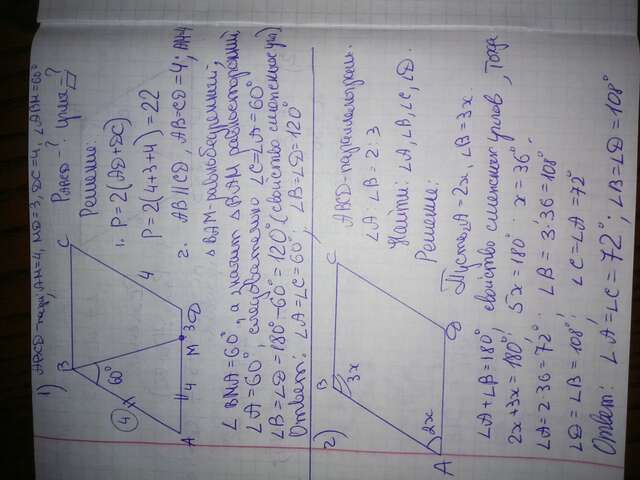 1) ABCD-пар., AM=4, MD=3, DC=4, ∠ABM=60°
PABCD-? углы▱-?
Решение:
1. P=2(AD+DC)
P=2(4+3+4)=22
2. AB||CD, AB=CD=4; AM=4
△BAM-равнобедренный;
∠BMA=60°, а значит △BAM равносторонний
∠A=60°, следовательно ∠C=∠A=60°
∠B=∠D=180°-60°=120° (свойство смежных уг.)
Ответ: ∠A=∠C=60°; ∠B=∠D=120°
B
C
60°
4
4
4
M
3
D
A
2)
ABCD-параллелограм.
∠A:∠B=2:3
Найти: ∠A,∠B,∠C,∠D.
Решение:
Пусть ∠A=2x, ∠B=3x.
∠A+∠B=180° свойство смежных углов, тогда
2x+3x=180°; 5x=180° x=36°;
∠A=2·36=72°; ∠B=3·36=108°
∠D=∠B=108°; ∠C=∠A=72°
Ответ: ∠A=∠C=72°; ∠B=∠D=108°
B
C
3x
2x
A
D